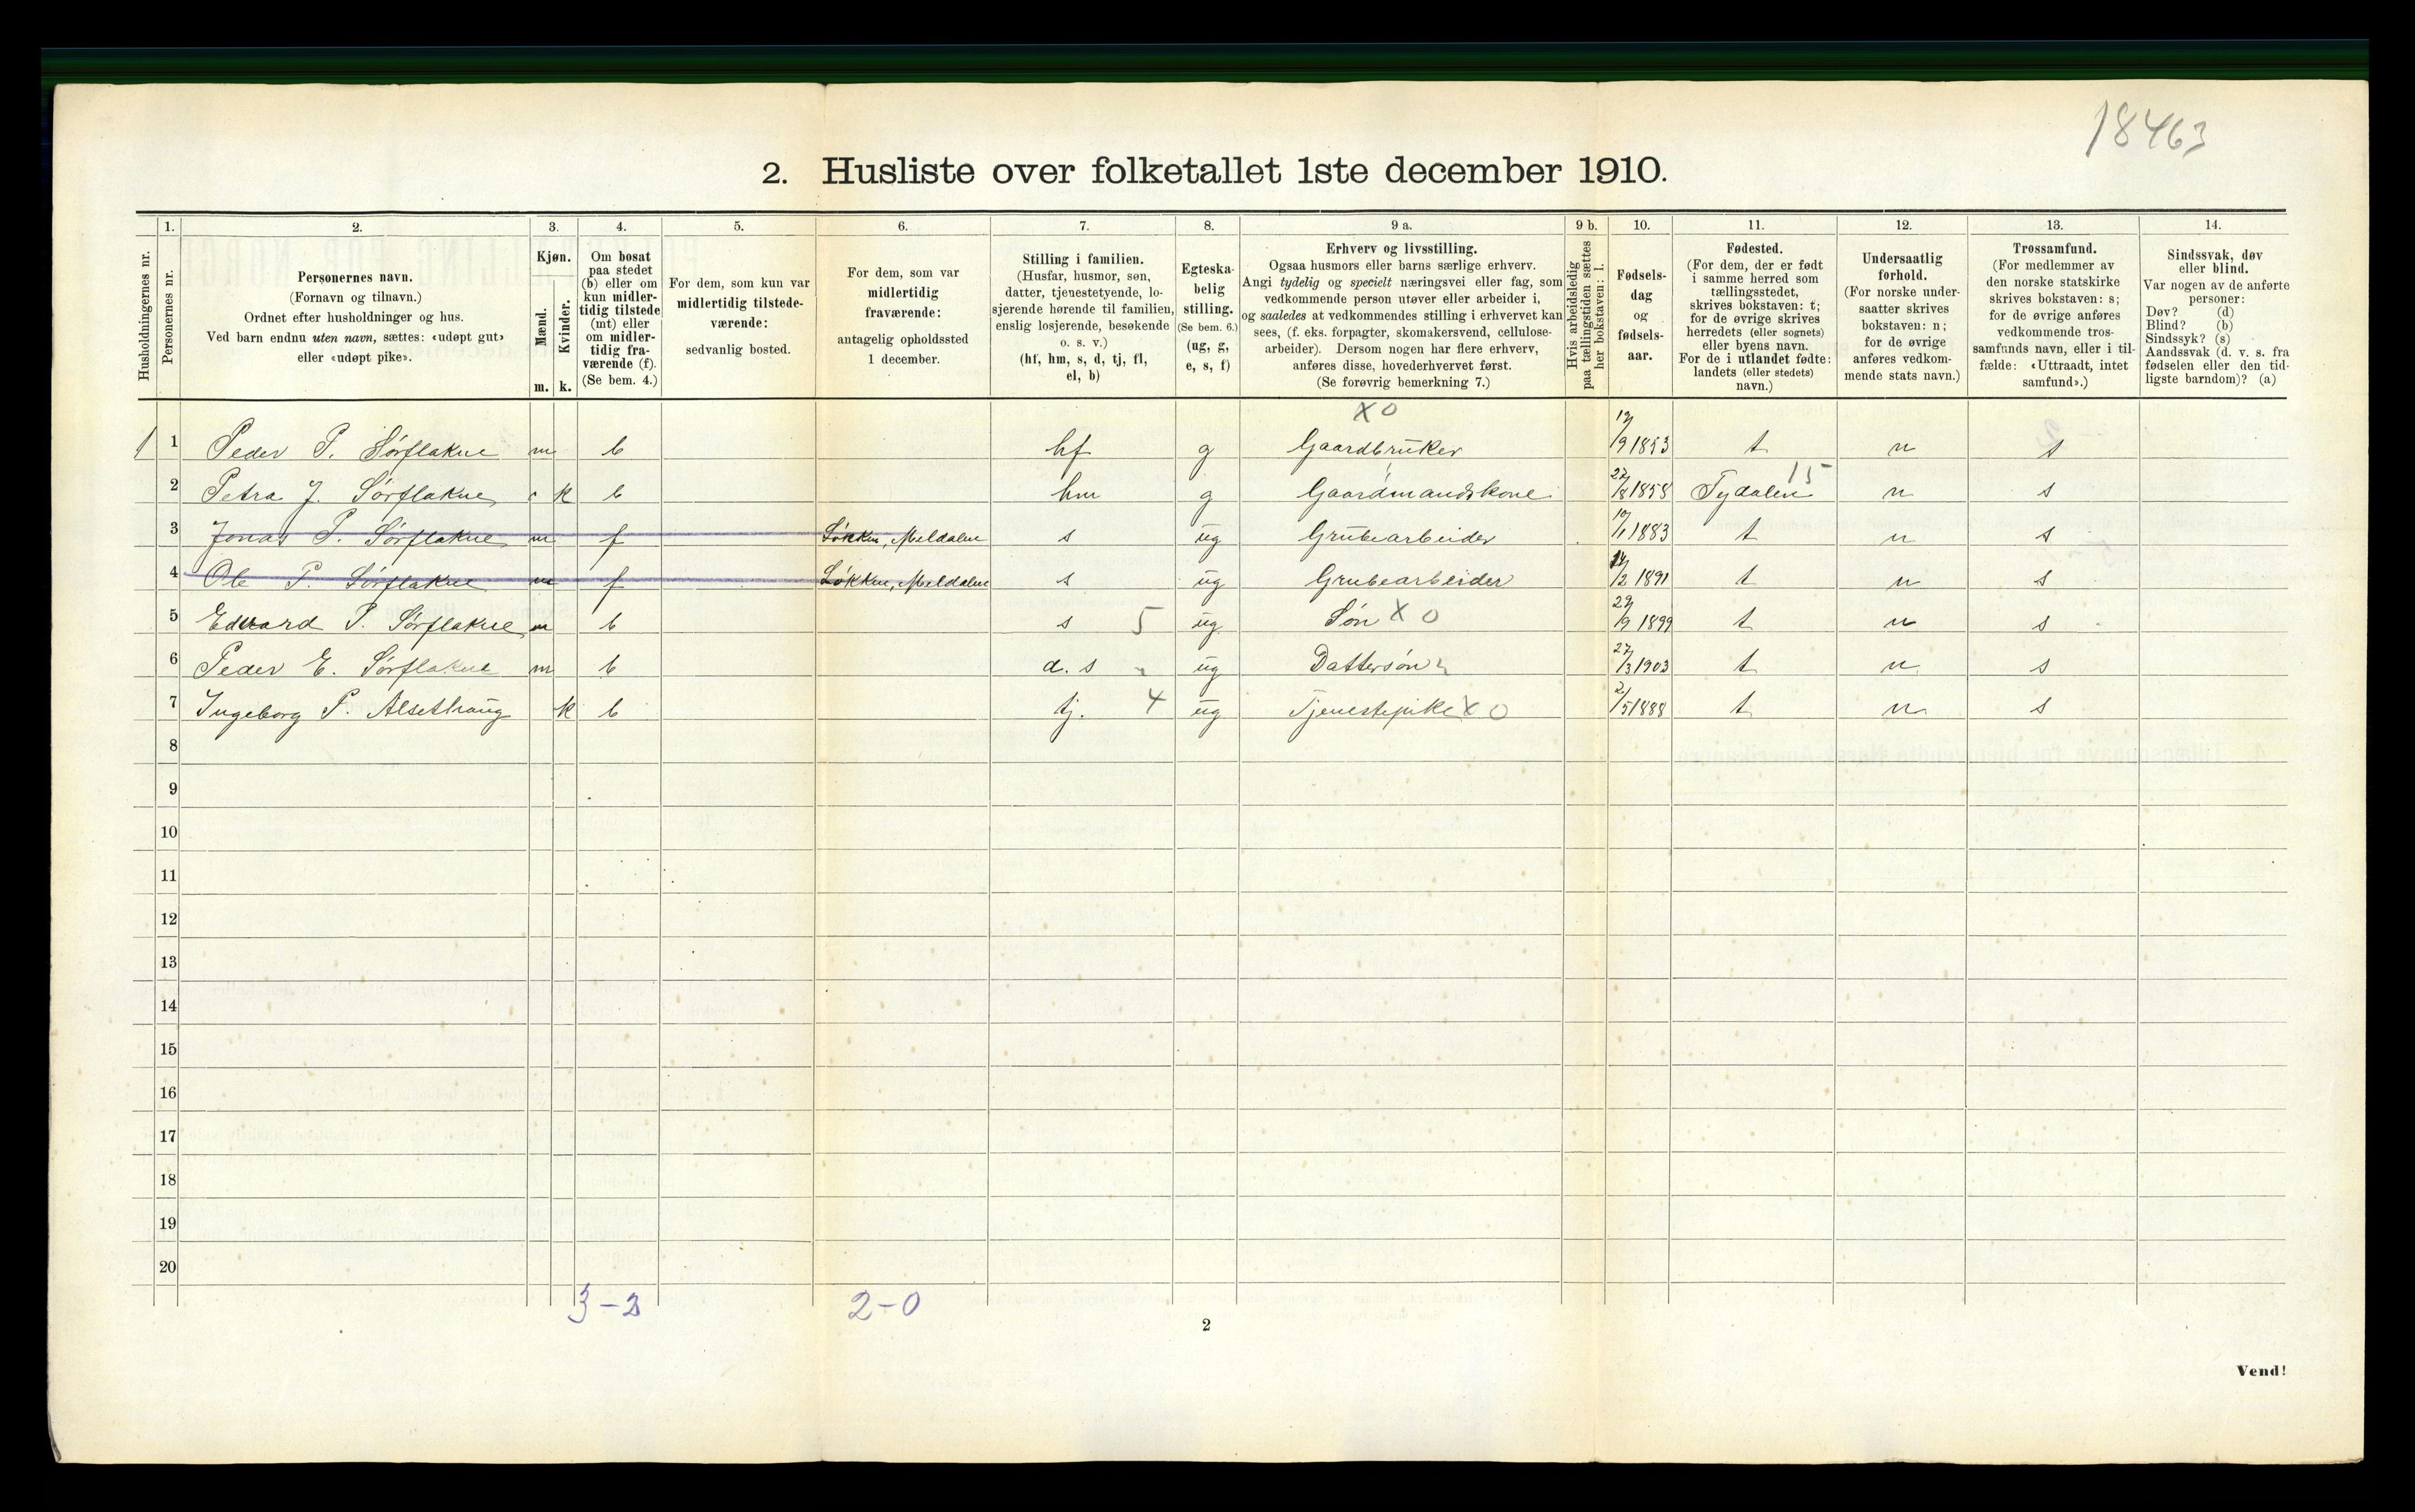 18463
2. Husliste over folketallet 1ste december 1910.
Husholdningernes nr.
1.
Personernes nr.
2.
Personernes navn.
(Fornavn og tilnavn.)
Ordnet efter husholdninger og hus.
Ved barn endnu uten navn, sættes: «udøpt gut»
eller «udøpt pike».
3.
Kjøn.
Mænd.
Kvinder.
m. k.
4.
Om bosat
paa stedet
(b) eller om
kun midler-
tidig tilstede
(mt) eller
om midler-
tidig fra-
værende (f).
(Se bem. 4.)
5.
For dem, som kun var
midlertidig tilstede-
værende:
sedvanlig bosted.
6.
For dem, som var
midlertidig
fraværende:
antagelig opholdssted
1 december.
7.
Stilling i familien.
(Husfar, husmor, søn,
datter, tjenestetyende, lo-
sjerende hørende til familien,
enslig losjerende, besøkende
o. s. v.)
(hf, hm, s, d, tj, fl,
el, b)
8.
Egteska-
belig
stilling.
(Se bem. 6.)
(ug, g,
e, s, f)
9 a.
Erhverv og livsstilling.
Ogsaa husmors eller barns særlige erhverv.
Angi tydelig og specielt næringsvei eller fag, som
vedkommende person utøver eller arbeider i,
og saaledes at vedkommendes stilling i erhvervet kan
sees, (f. eks. forpagter, skomakersvend, cellulose-
arbeider). Dersom nogen har flere erhverv,
anføres disse, hovederhvervet først.
(Se forøvrig bemerkning 7.)
9 b.
Hvis arbeidsledig
paa tællingstiden sættes
her bokstaven: l.
10.
Fødsels-
dag
og
fødsels-
aar.
11.
Fødested.
(For dem, der er født
i samme herred som
tællingsstedet,
skrives bokstaven: t;
for de øvrige skrives
herredets (eller sognets)
eller byens navn.
For de i utlandet fødte:
landets (eller stedets)
navn.)
12.
Undersaatlig
forhold.
(For norske under-
saatter skrives
bokstaven: n;
for de øvrige
anføres vedkom-
mende stats navn.)
13.
Trossamfund.
(For medlemmer av
den norske statskirke
skrives bokstaven: s;
for de øvrige anføres
vedkommende tros-
samfunds navn, eller i til-
fælde: «Uttraadt, intet
samfund».)
14.
Sindssvak, døv
eller blind.
Var nogen av de anførte
personer:
Døv? (d)
Blind? (b)
Sindssyk? (s)
Aandssvak (d. v. s. fra
fødselen eller den tid-
ligste barndom)? (a)
X O
1 1 Peder P. Sørflakne m b hf g Gaardbruker /9 1853 t n s
2 Petra J. Sørflakne k b hm g Gaardmandskone 22/8 1858 Tydalen 15 n s
3 Jonas P. Sørflakne m f Løkken, Meldalen s ug Grubearbeider /1 1883 t n s
4 Ole P. Sørflakne m f Løkken, Meldalen s ug Grubearbeider /2 1891 t n s
5 Edvard P. Sørflakne m b s 5 ug Søn X O 29/9 1899 t n s
6 Peder E. Sørflakne m b d. s ug Dattersøn 27/3 1903 t n s
7 Ingeborg P. Alsethaug k b tj. 4 ug Tjenestepike X O 2/5 1888 t n s
8
9
10
11
12
13
14
15
16
17
18
19
20
3-2 2-0
2
Vend!